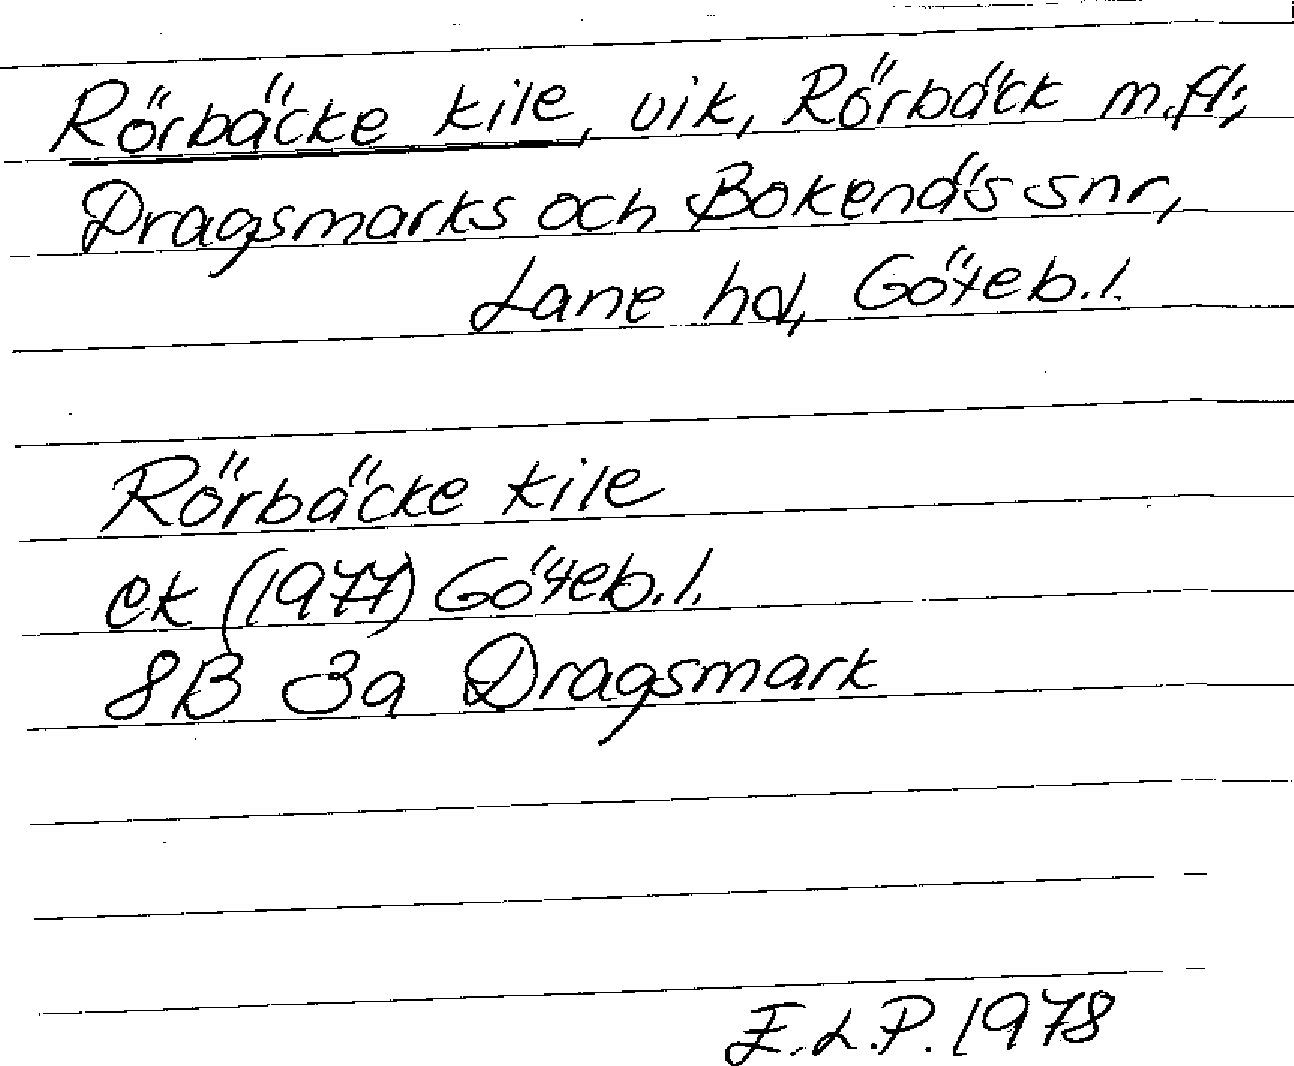 Rörbäcke kile, vik, Rörbäck m.fl;
Dragsmarks och Bokenäs snr,
Lane hd, Göteb.l.
Rörbäcke kile
ek (1977) Göteb.l.
8B 3a Dragsmark
E.L.P. 1978